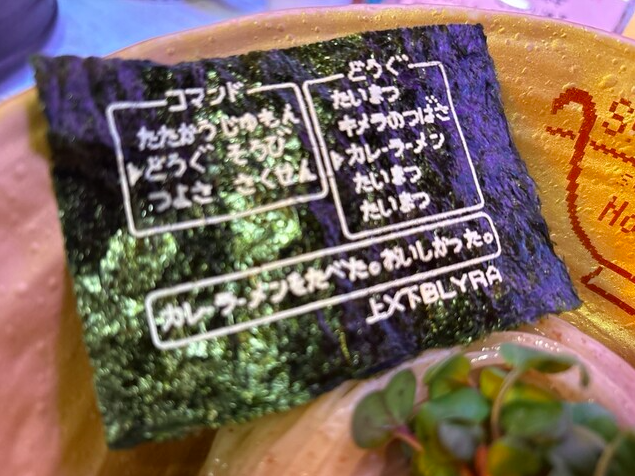 コマンド
たたかう じゅもん
▶どうぐ そうび
つよさ さくせん
どうぐ
たいまつ
キメラのつばさ
▶カレーラーメン
たいまつ
たいまつ
カレーラーメンをたべた。おいしかった。
上X下BLYRA